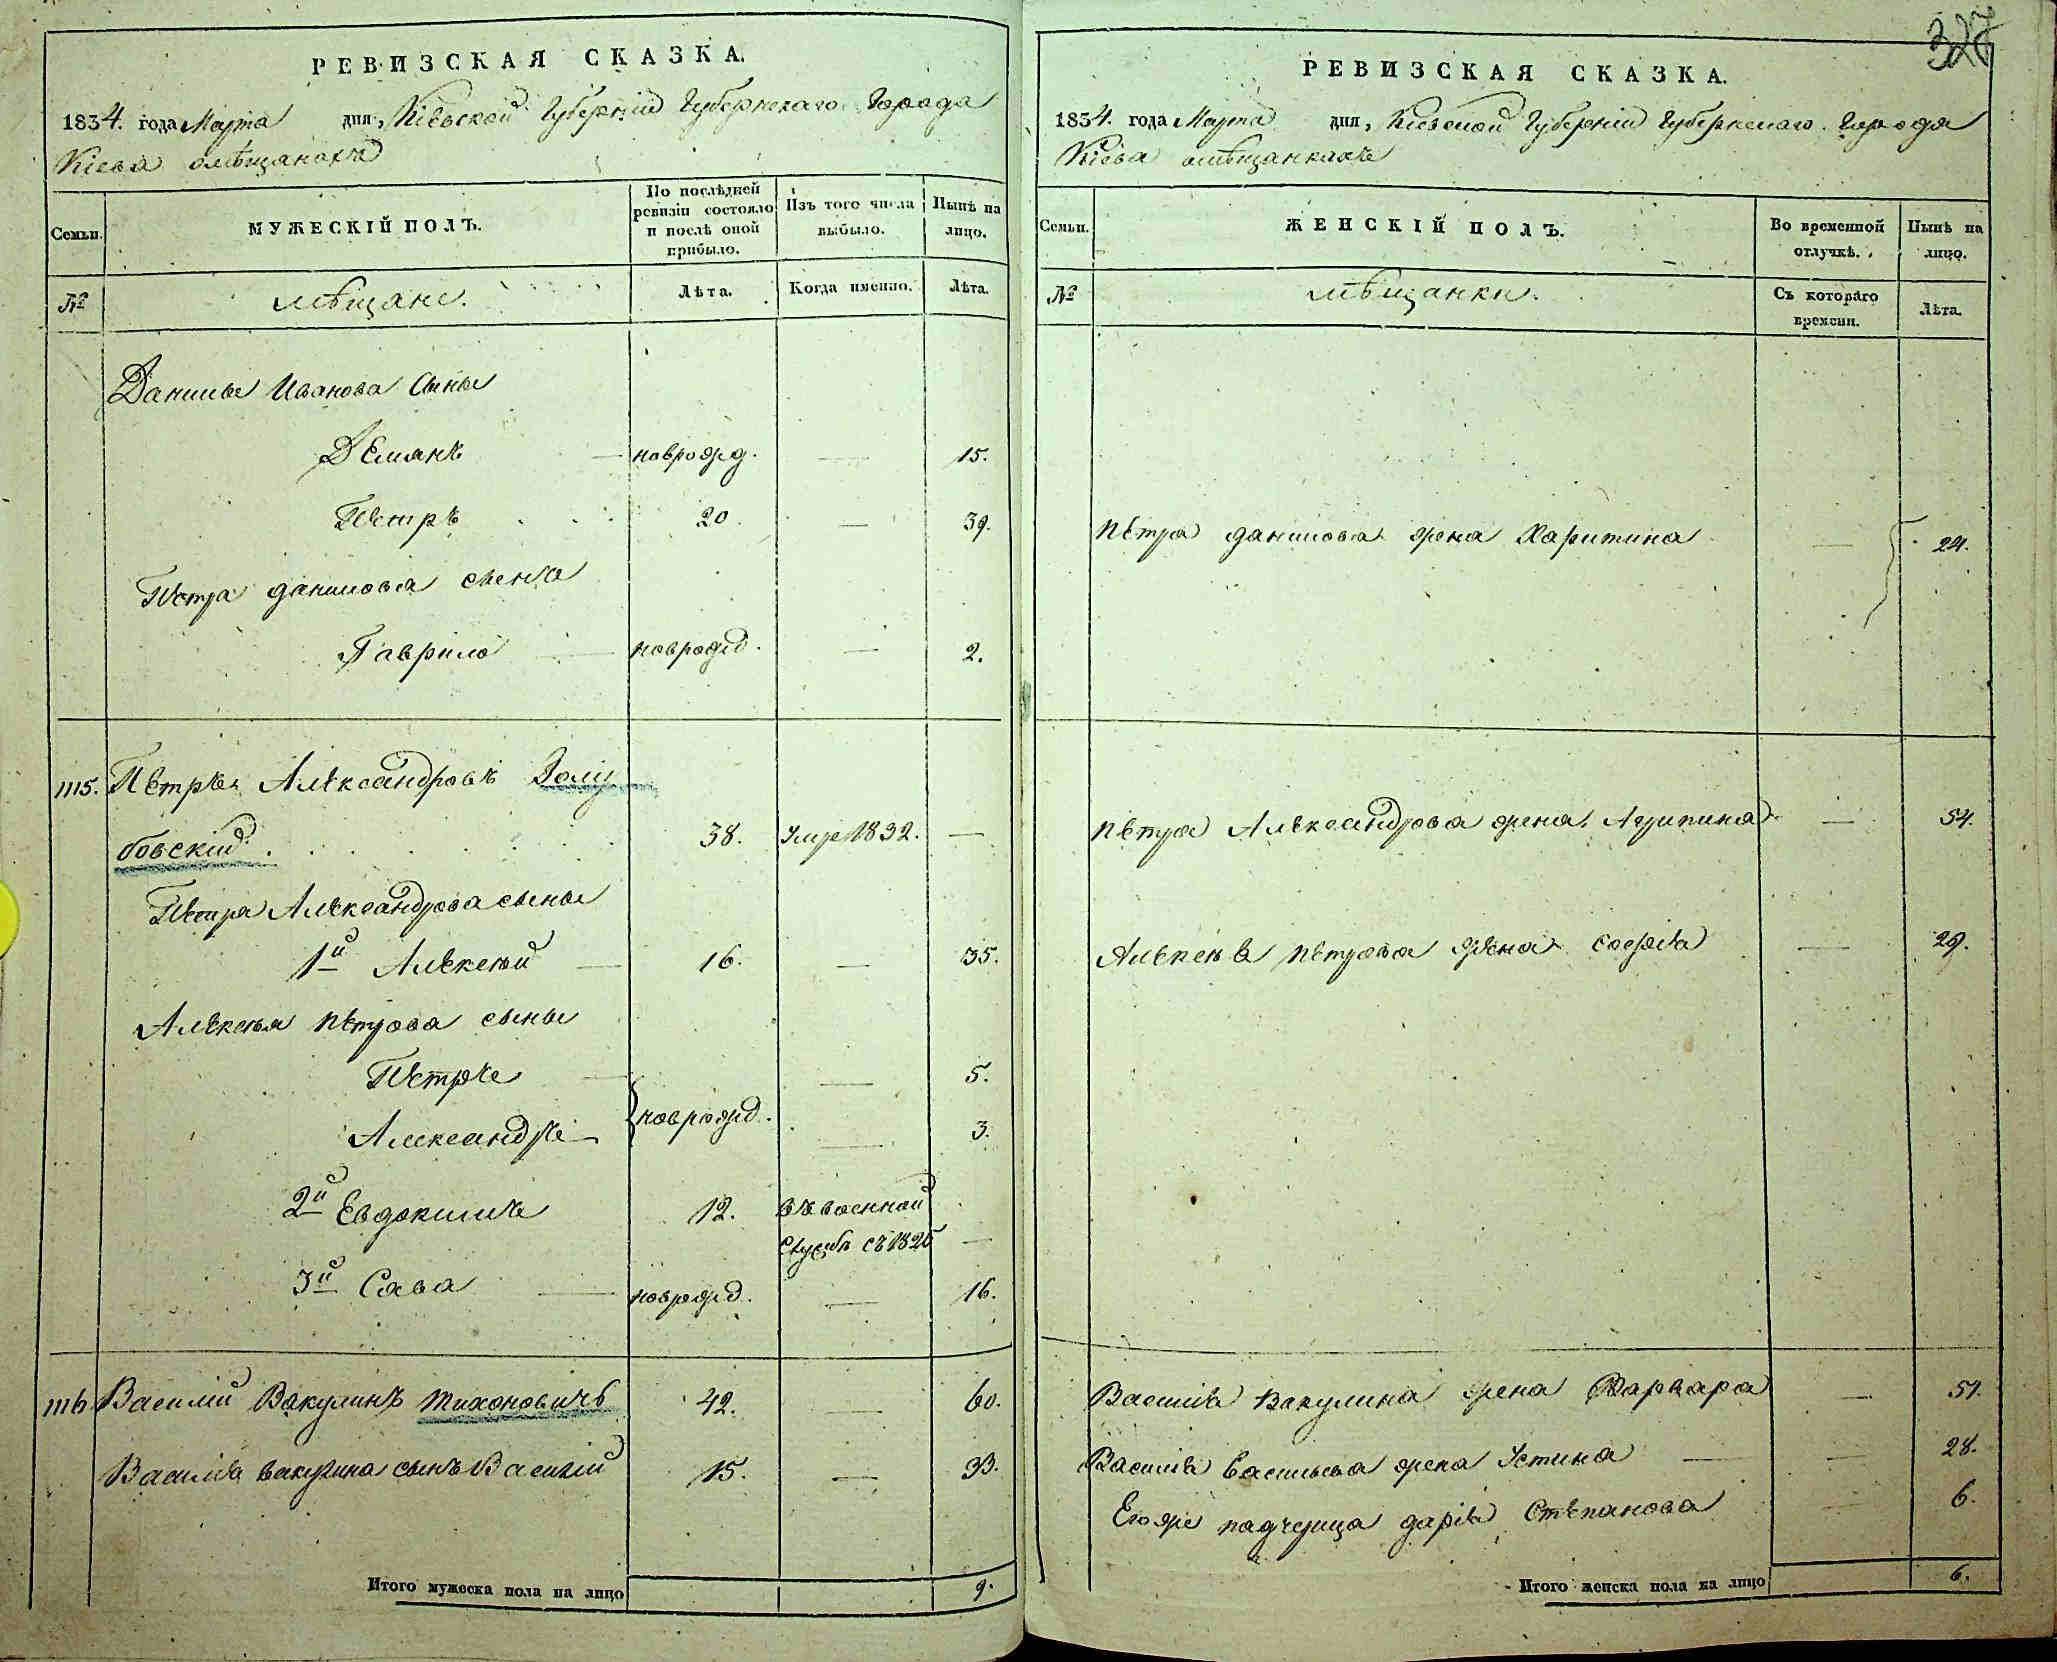 РЕВИЗСКАЯ СКАЗКА.
1834. года Марта дня, Кіевской Губерніи Губернскаго Города
Кіева омѣщанахъ
Семьи.
МУЖЕСКІЙ ПОЛЪ.
По послѣдней
ревизіи состояло
и послѣ оной
прибыло.
Изъ того числа
выбыло.
Нынѣ на
лицо.
№
мѣщане.
Лѣта.
Когда именно.
Лѣта.
Данилы Иванова сыны
Демянъ — новрожд. — 15.
Петръ 20 — 39.
Петра данилова сынъ
Гаврило — новрожд. — 2.
1115. Петръ Александровъ Голу
бовский. 38. Умре 1832. —
Петра Александрова сыны
1й Алексей — 16. — 35.
Алексея Петрова сыны
Петръ — 5.
новрожд.
Александръ — 3.
2й Евдокимъ 12. въ военной
службѣ съ 1825 —
3й Сава — новрожд. — 16.
1116. Василій Вакулинъ Тихоновичъ 42. — 60.
Василія вакулина сынъ Василій 15. — 33.
Итого мужеска пола на лицо 9.
327
РЕВИЗСКАЯ СКАЗКА.
1834. года Марта дня, Кіевской Губерніи Губернскаго Города
Кіева омѣщанкахъ
Семьи.
ЖЕНСКІЙ ПОЛЪ.
Во временной
отлучкѣ.
Нынѣ на
лицо.
№
мѣщанки.
Съ котораго
времени.
Лѣта.
Петра данилова жена Харитина — 24.
Петра Александрова жена Агрипина — 54.
Алексея Петрова жена Софія — 29.
Василія Вакулина жена Варвара — 51.
Василія Васильева жена Устина — 28.
Егоже падчерица дарія Степанова — 6.
Итого женска пола на лицо 6.